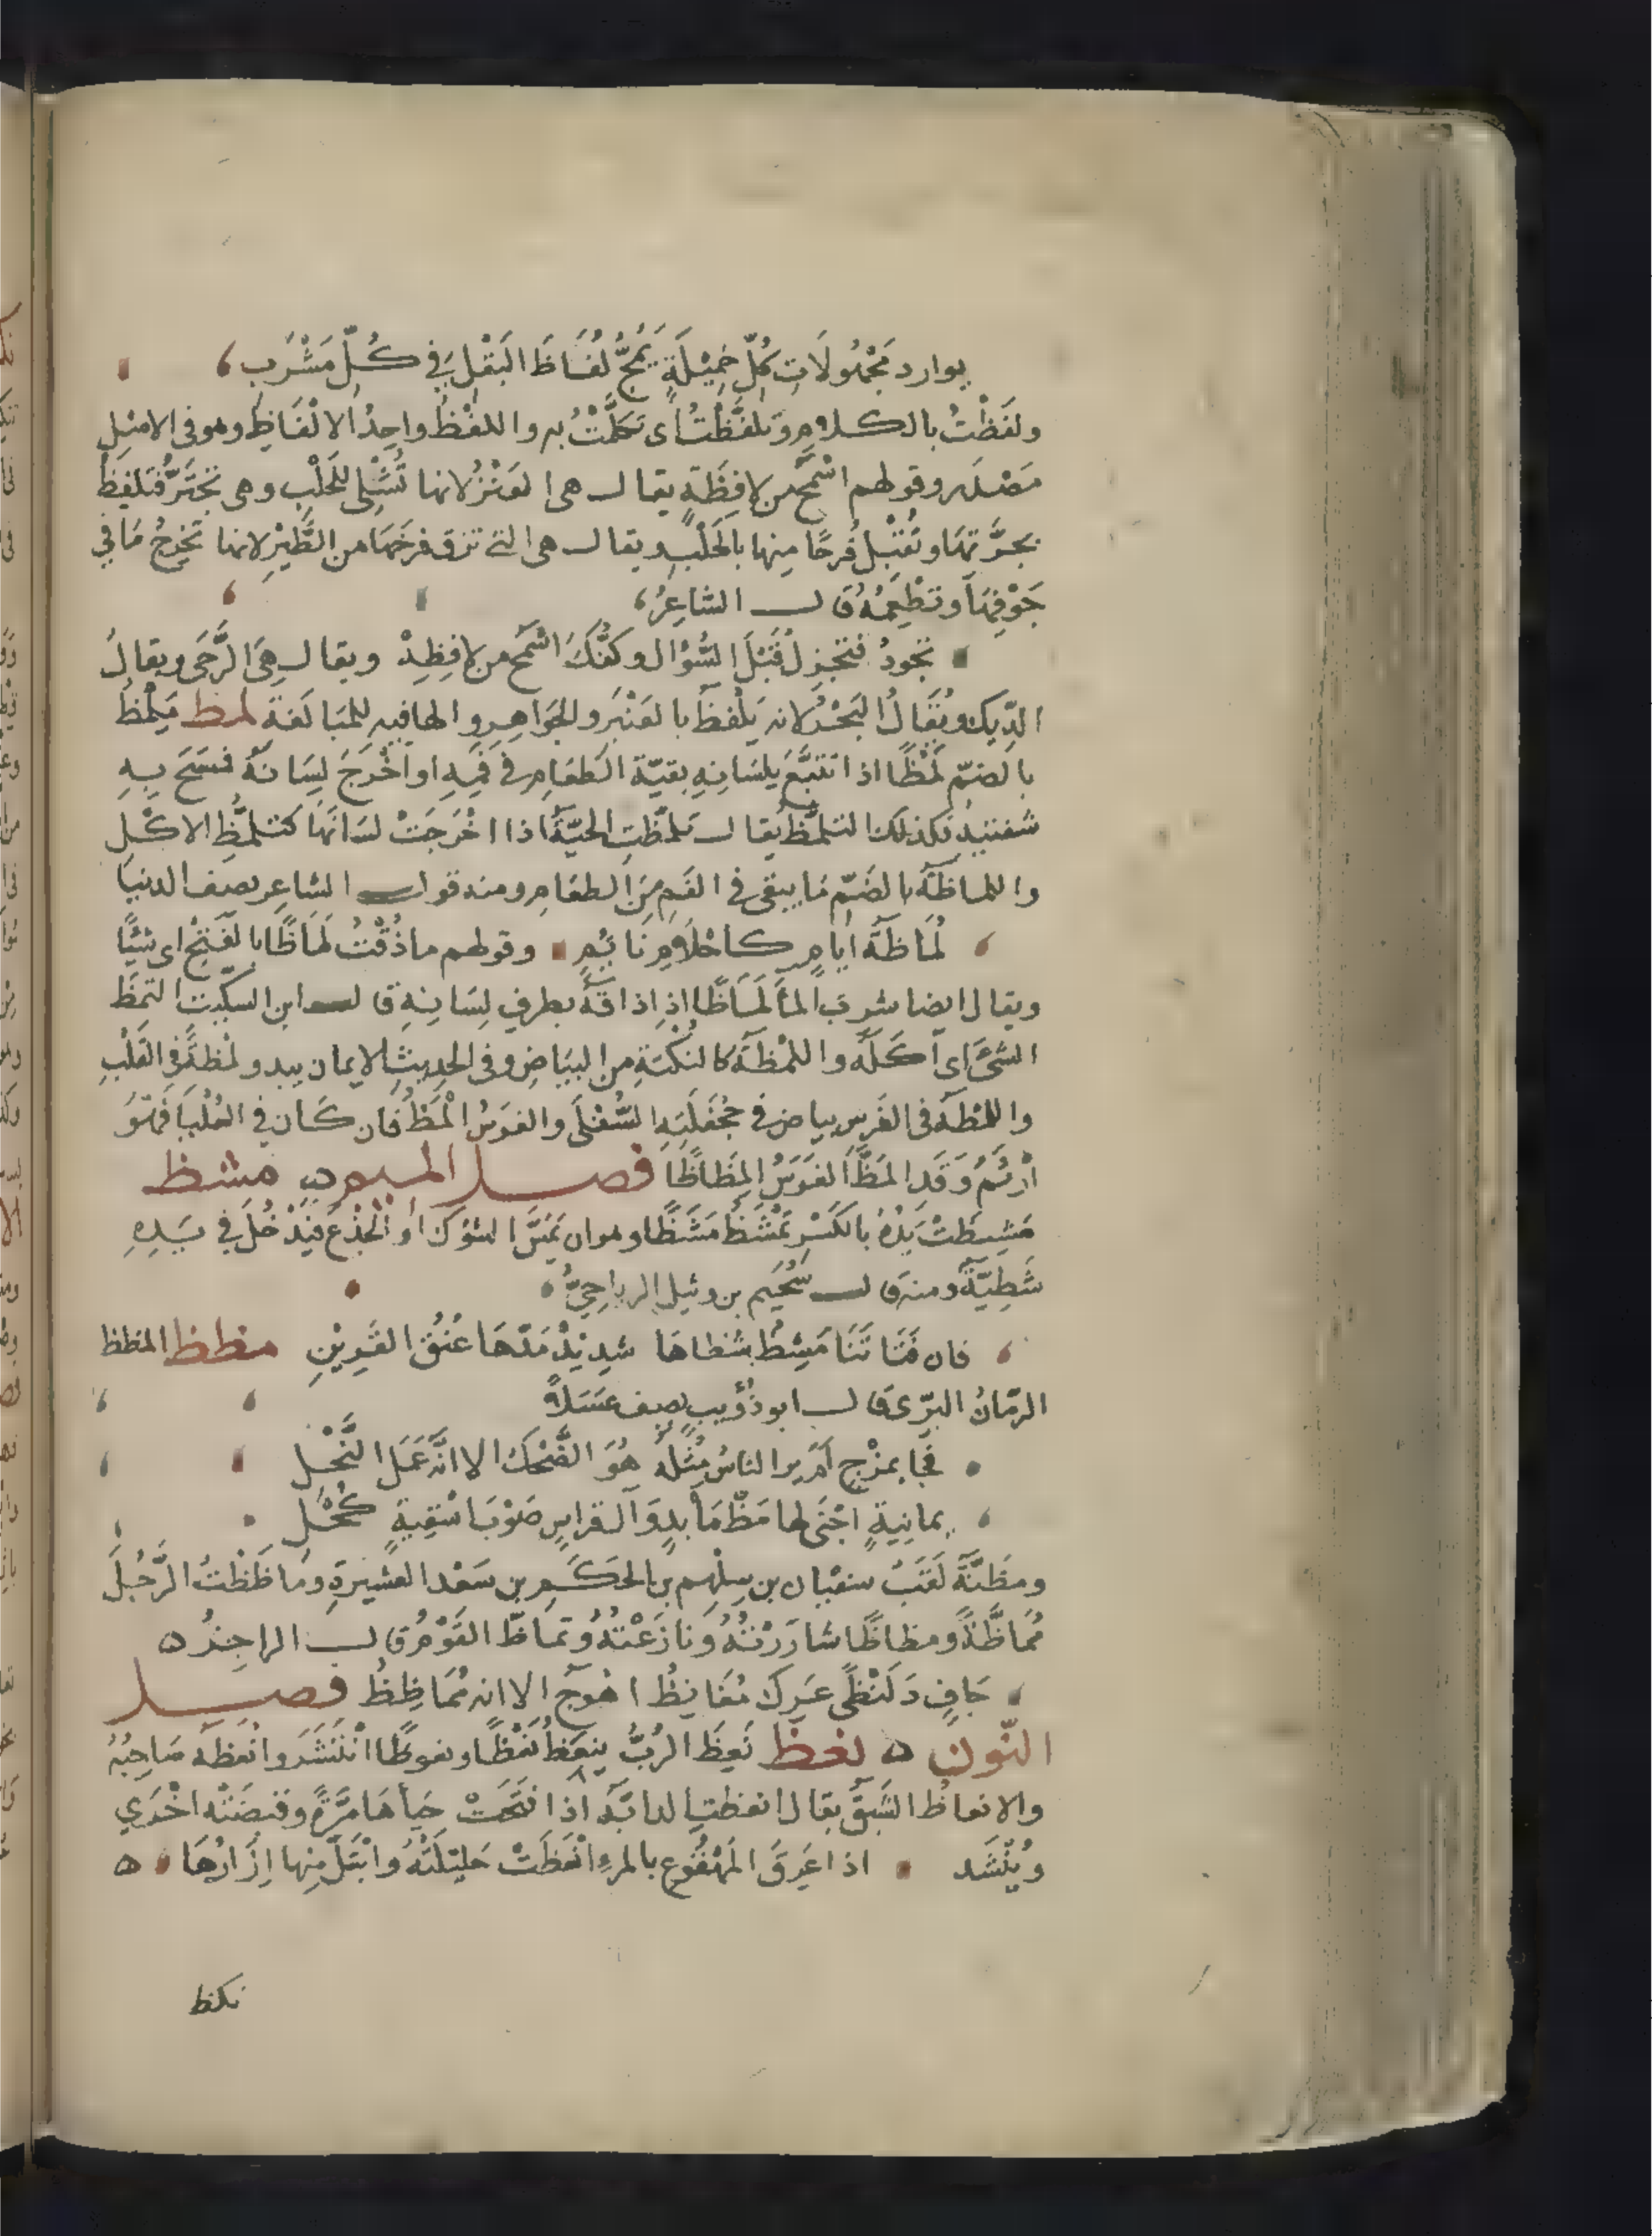 يوارد مَجْهُولَاتِ كُلِّ خَمِيْلَةٍ يَمُجُّ لُفَاظَ البَقْلِ فِي كُلِّ مَشْرَبِ
ولَفَظْتُ بالكلام وَتَلَفَّظْتُ اى تَكَلَّمْتُ به واللفْظُ واحِدُ الالْفَاظِ وهو فى الاصْلِ
مَصْدَر وقولهم اسْمَحُ من لافِظَةٍ يقال هى العَنْزُ لانها تُشْلى للحَلْبِ وهى تَجْتَرُّ فتلفِظُ
بجرَّتهَا وتُقْبِل فَرحًا مِنها بالحَلْبِ ويقال هى التى تزق فرخَهَا من الطَّيْرِ لانها تخرِجُ مَا فِي
جَوْفِهَا وتطْعِمُهُ قال الشاعِرُ
تجُودُ فتجزِلُ قَبْلَ السُّؤال وكفُّكَ اسْمَح من لافِظِهْ ويقال هِىَ الرَّحَى ويقالُ
الدِّيك ويُقَالُ البَحْرُ لانه يَلْفظُ بالعَنْبَر والجَوَاهِر والها فيه للمُبَالَغة لمظ يَلْمُظُ
بالضمّ لَمْظًا اذا تتبَّعَ بلسَانِهِ بقيّة الطعَامِ فى فَمِهِ او اخْرَجَ لِسَانَهُ فمسَحَ بِهِ
شفتيه وكذلك التلمّظُ يقال تلمّظتِ الحيَّةُ اذا اخْرَجَتْ لسَانَهَا كتلَمُّظِ الاكْلِ
واللماظَةُ بالضَمِّ مَا يبقى فى الفَمِ مِنَ الطعَامِ ومنه قول الشاعِر يصِف الدنيَا
لُمَاظَة ايامٍ كاحْلَامِ نائمِ وقولهم ما ذُقْتُ لَمَاظًا بالفَتْحِ اى شَيْئًا
ويقال ايضا شرِبَ المآ لَمَاظًا اذا ذاقَهُ بطرفِ لِسَانِهِ قال ابن السكّيت التمظَ
الشىَ اى اَكَلَهُ واللمْظَةُ كالنكْتَةِ من البيَاضِ وفى الحدِيثِ الايمان يبدو لمْظَةً فى القَلْبِ
واللمْظَة فى الفَرس بياض فى جحْفَلَتِهِ السُّفْلَى والفرسُ الْمَظُ فان كَان فى العُلْيَا فَهُوَ
ارْثَمُ وَقَدِ المَظَّ الفَرَسُ المِظَاظًا فصل الميم مشظ
مَشِظَتْ يَدُهُ بالكَسْرِ تَمْشَظُ مَشَظًا وهو ان يَمَسَّ الشوْكَ أو الْجذْعَ فيَدْخُلَ فِي يَدِهِ
شَظِيَّةٌ ومنه قال سُحَيْم بن وثيل الرياحِيُّ
فان قَنَاتَنَا مَشِظٌ شظاها شدِيدٌ مَدّهَا عُنُقَ القَرِيْنِ مظظ المَظظ
الرمّانُ البرّى قال ابو ذُؤيبٍ يصِف عَسَلاً
فجَا بمزْجٍ لَمْ يرا الناسُ مِثْلَهُ هُوَ الضَّحْكُ الا انَّهُ عَمَلُ النَّحْلِ
يمانيةٍ اجْنَى لها مَظَّ مَأبدٍ وَآل قراسٍ صَوْبَ اسْقِيةٍ كُحْلِ
ومَظَّةُ لَقَبُ سفيان بن سِلْهِم بن الحَكَم بن سَعْد العشيرةِ ومَاظَظْتُ الرَّجُلَ
مُمَاظَّةً ومظاظًا شارَرْتُهُ ونَازَعْتُهُ وتماظّ القَوْمُ قال الراجِزُ
جَافٍ دَلَنْظًى عَرِكٌ مُغَانِظُ اهْوَجُ الا انه مُمَاظِظُ فصل
النّون نعظ نَعِظَ الزُبُّ ينعَظُ نَعْظًا ونعوظًا انْتَشَرَ وانْعَظَهُ صَاحِبُهُ
والانعاظُ الشَبَقُ يقال انعظتِ الدابّة اذا فتَحَتْ حَيأَهَا مَرَّةً وقبضَتْه اخْرَي
ويُنْشَد اذا عَرِقَ المَهْقُوع بالمرءِ انْعَظَتْ حَلِيْلَتُهُ وابْتَلّ مِنها اِزَارُهَا
نكظ